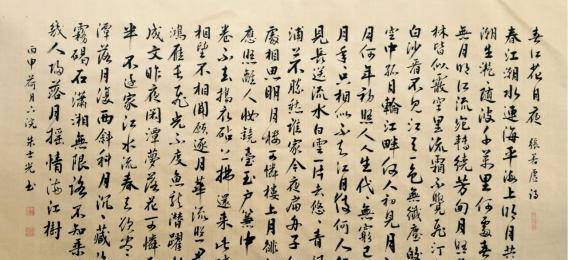 春江花月夜 張若虛詩
春江潮水連海平海上明月共
潮生灩灩隨波千萬里何處春
無月明江流宛轉繞芳甸月照
林皆似霰空里流霜不覺飛汀
白沙看不見江天一色無纖塵皎
空中孤月輪江畔何人初見月
月何年初照人人生代代無窮已
月年年只相似不知江月待何人
見長江送流水白雲一片去悠悠青
浦上不勝愁誰家今夜扁舟子
處相思明月樓可憐樓上月徘
應照離人妝鏡臺玉戶簾中
卷不去搗衣砧上拂還來此時
相望不相聞願逐月華流照
鴻雁長飛光不度魚龍潛躍
成文昨夜閑潭夢落花可憐
半不還家江水流春去欲盡
潭落月復西斜斜月沉沉藏
霧碣石瀟湘無限路不知乘
幾人歸落月搖情滿江樹
丙申荷月下浣 朱士光書